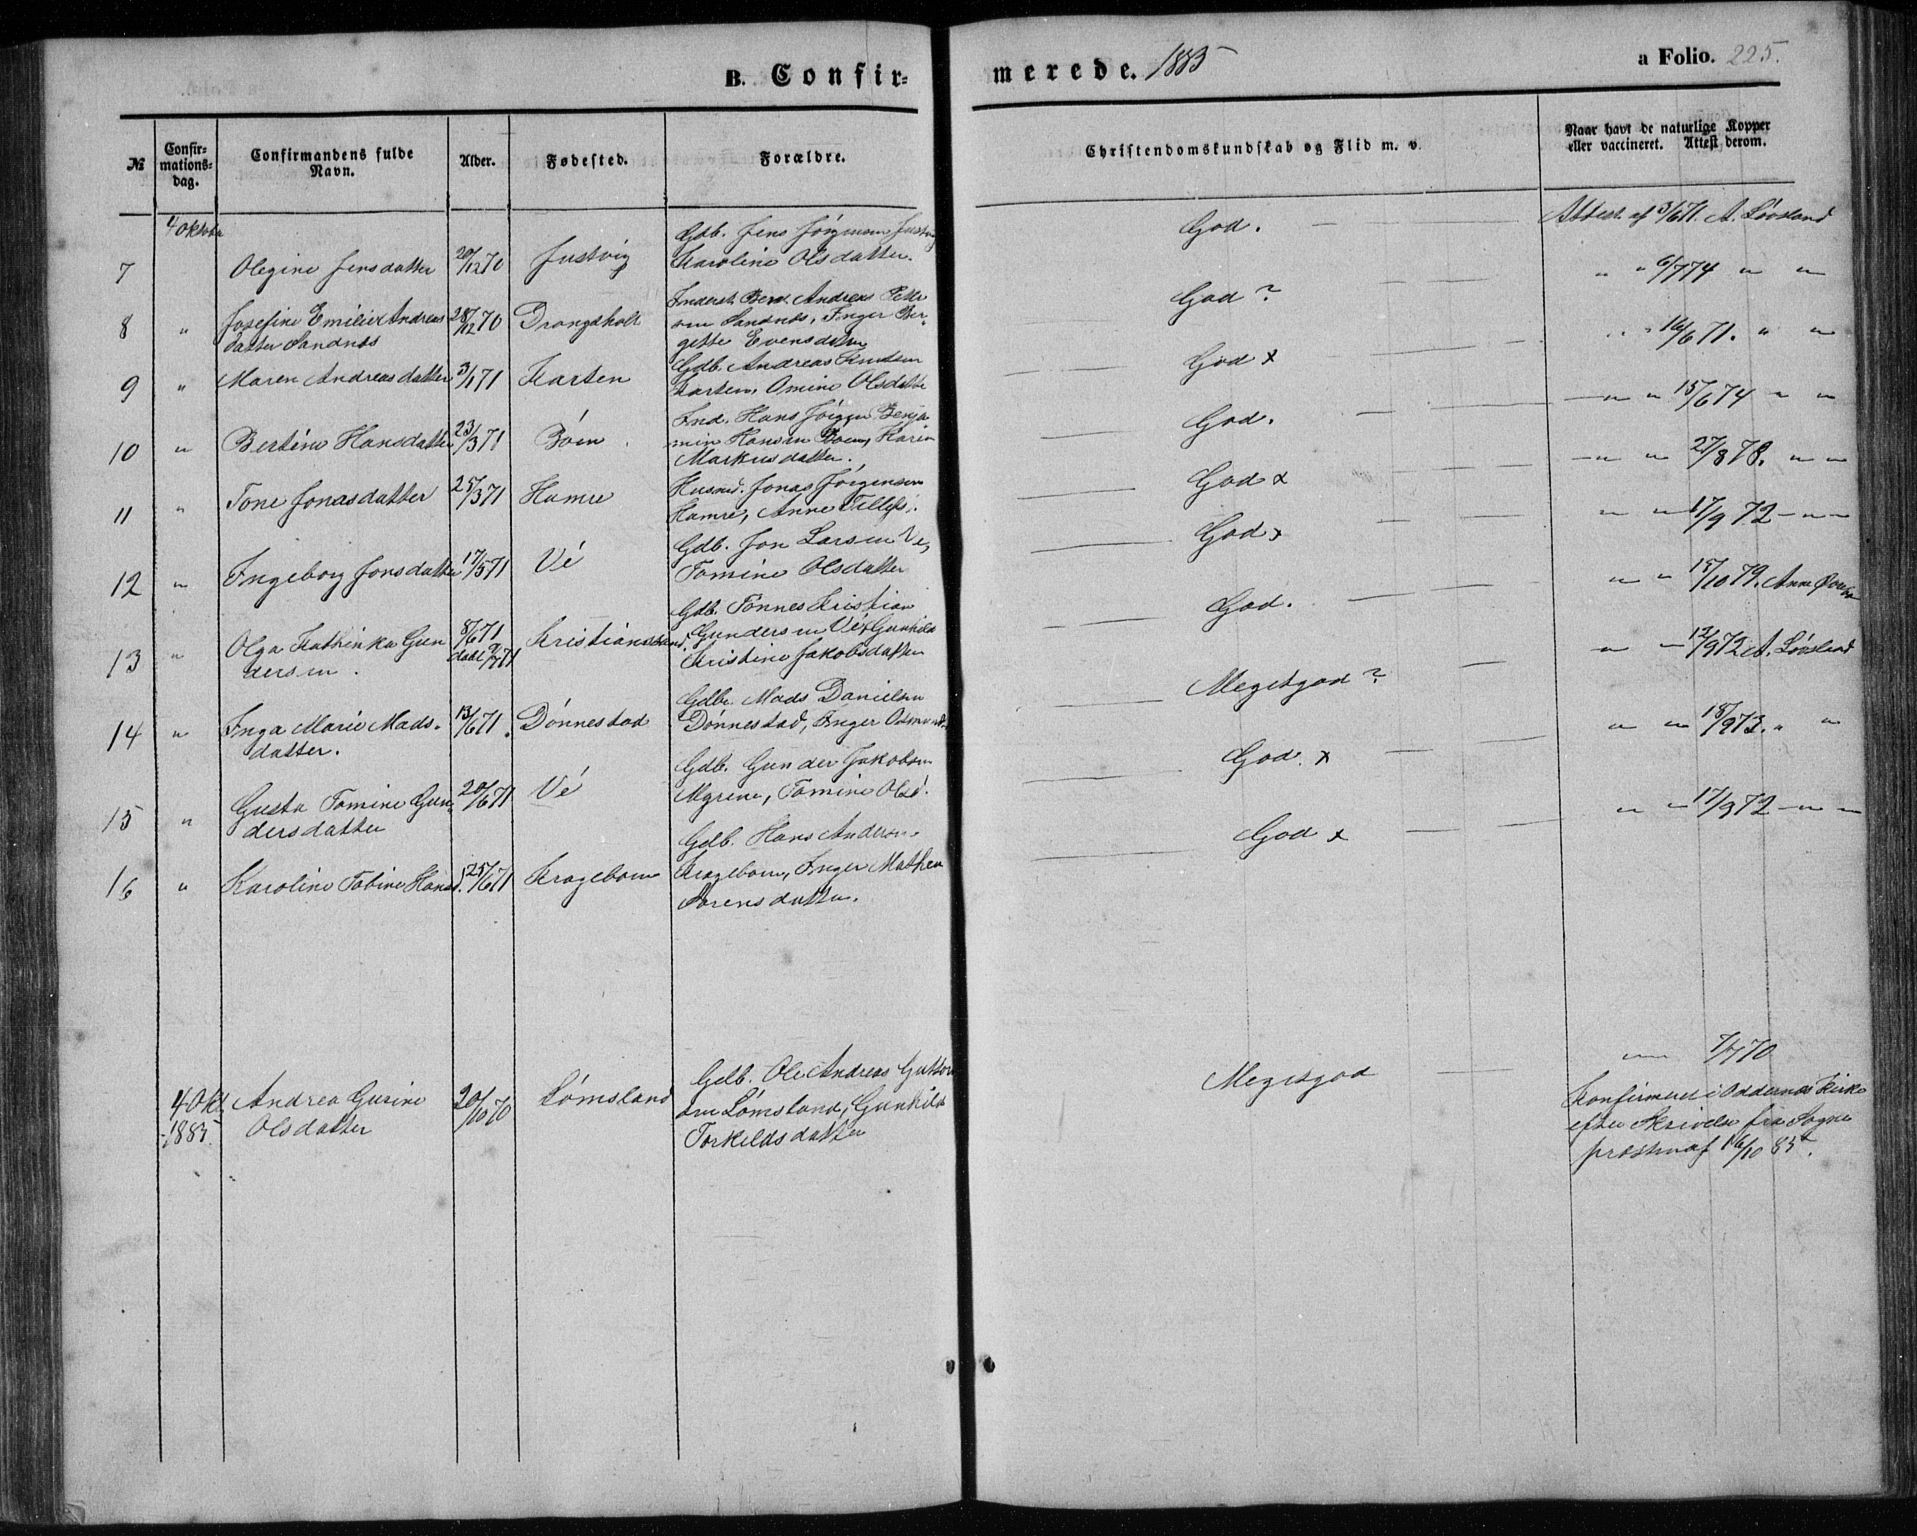 B. Confir-
merede. 1885
a Folio. 225.
№
Confir-
mations-
dag.
Confirmandens fulde
Navn.
Alder.
Fødested.
Forældre.
Christendomskundskab og Flid m. v.
Naar havt de naturlige Kopper
eller vaccineret. Attest derom.
4 Oktober
7 Olegine Jensdatter 20/12 70 Justvig
Gdb. Jens Jørgensen Justvig
Karoline Olsdatter.
God. Attest af 3/6 71. A. Løvsland
8 " Josefine Emilie Andreas
datter Sandnes 28/12 70 Drangsholt
Inderst. Bern. Andreas Peder
sen Sandnes, Inger Ber-
gette Evensdatter
God ? " " 6/7 74 " "
9 " Maren Andreasdatter 3/1 71 Karten
Gdb. Andreas Knudsen
Karten, Omine Olsdatter
God x " " 16/6 71. " "
10 " Bertine Hansdatter 23/3 71 Boen.
Ind. Hans Jørgen Benja
min Hansen Boen, Karen
Markusdatter.
God. " " 15/6 74 " "
11 " Tone Jonasdatter 25/3 71 Hamre
Husmd. Jonas Jørgensen
Hamre, Anne Tellefs.
God x " " 27/8 78. " "
12 " Ingeborg Jonsdatter 17/5 71 Vé
Gdb. Jon Larsen Ve,
Tomine Olsdatter
God x " " 17/9 72 " "
13 " Olga Kathinka Gun
dersen. 8/6 71
døbt 9/7 71 Kristianssand
Gdb. Tønnes Kristian
Gundersen Vé, Gunhild
Kristine Jakobsdatter
God. " " 15/10 79. Anne
14 " Inga Marie Mads-
datter. 13/6 71. Dønnestad
Gdbr. Mads Danielsen
Dønnestad, Inger Osmunds
Megetgod ? " " 12/9 72 A. Løvsland
15 " Gusta Tomine Gun-
dersdatter 20/6 71 Vé
Gdb. Gunder Jakobsen
Myrene, Tomine Olsd.
God. x " " 18/9 73. " "
16 " Karoline Tobine Hansd. 25/6 71 Krageboen
Gdb. Hans Anderson
Krageboen, Inger Mathea
Sørensdatter.
God x " " 17/9 72 " "
4 Okt
1885. Andrea Gurine
Olsdatter 20/10 70 Lømsland
Gdb. Ole Andreas Guttorm
sen Lømsland, Gunhild
Torkildsdatter
Megetgod " " 1/7 70
Konfirmeret i Oddernes Kirke
efter Skrivelse fra Sogne
præsten af 16/10 85.